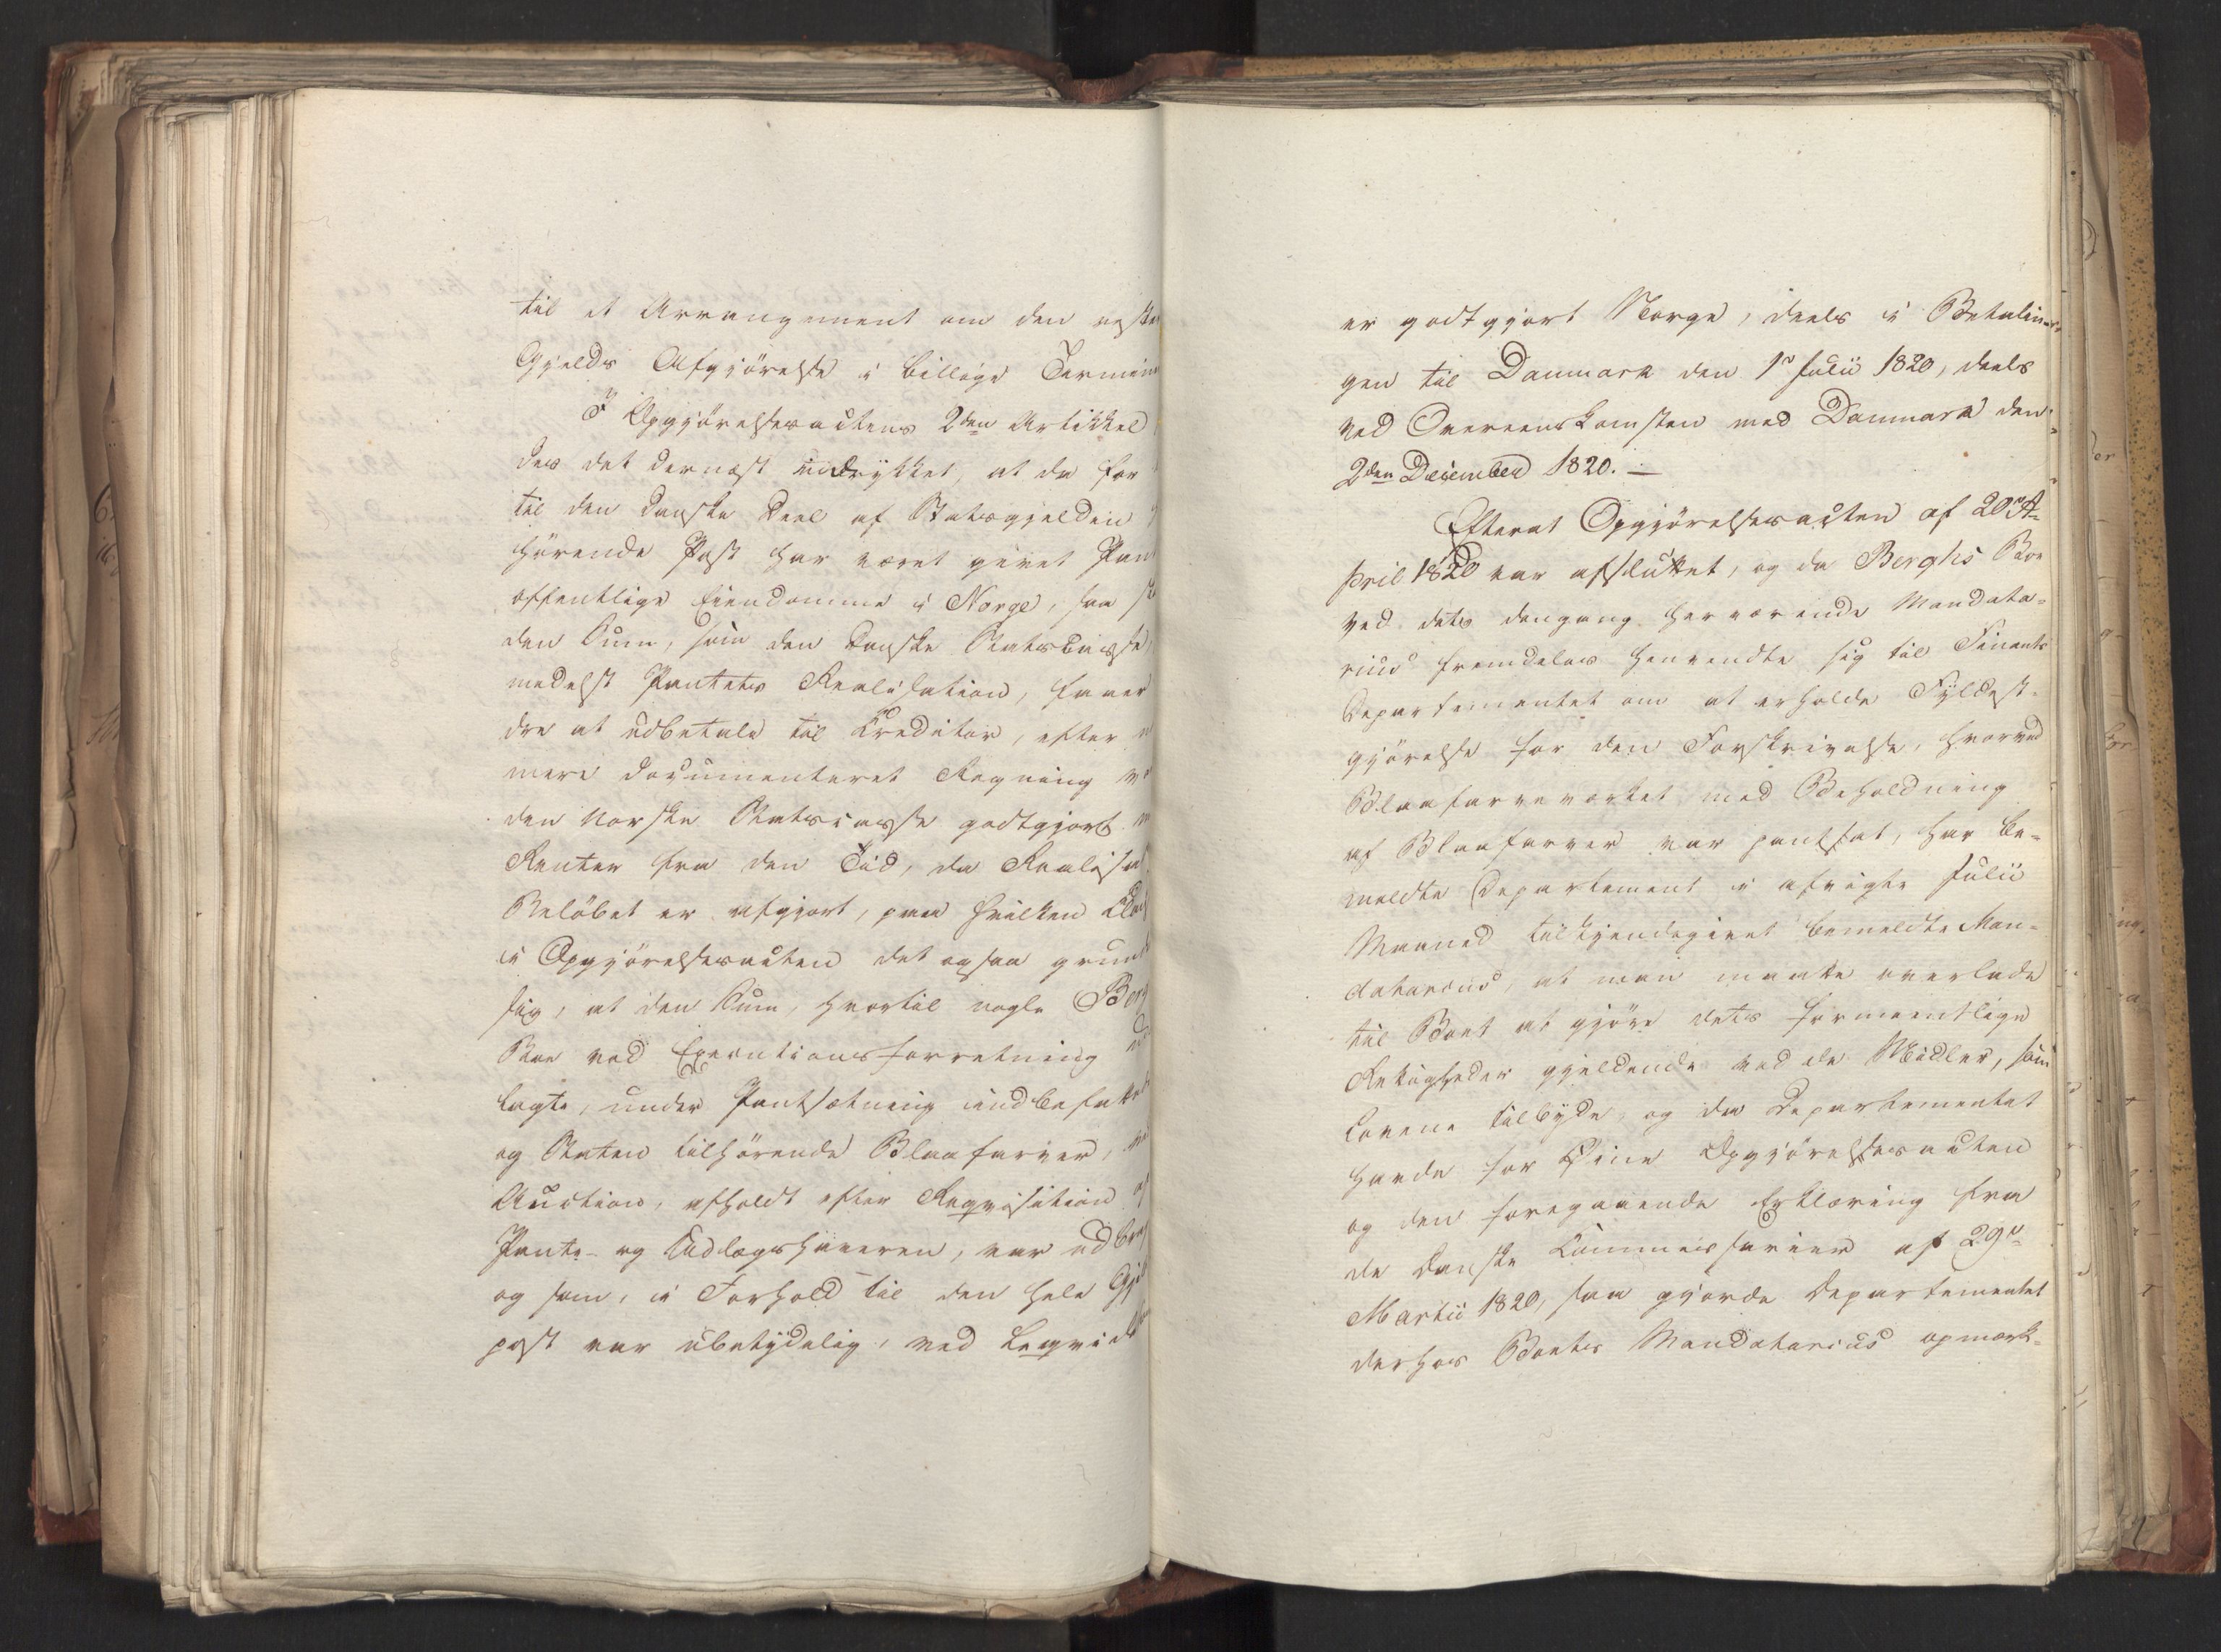 til et Arrangement om den
Gjelds Afgjörelse i billige
I Opgjörelsesactens 2den Artikkel
des det dernæst udtrykket, at da for
til den danske Deel af Statsgjelden
hörende Post har været givet
offentlige Eiendomme i Norge, saa
den Sum, som den danske Statscasse,
medelst Pantets Realisation, faaer
dre at udbetale til Creditor, efter
mere documenteret Regning
den norske Statscasse godtgjort
Renter fra den Tid, da
Belöbet er afgjort, paa hvilken
i Opgjörelsesacten det ogsaa
sig, at den Sum, hvortil nogle
Boe ved Executionsforretning
lagte, under Pantsætning indbefattet
og Staten tilhörende Blaafarver,
Auction, afholdt efter Reqvisition af
Pante- og Udlægshaveren, var
og som, i Forhold til den hele
post var ubetydelig, ved
er godtgjort Norge, deels i Betalin-
gen til Danmark den 1ste Julii 1820, deels
ved Overeenskomsten med Danmark den
2den December 1820. –
Efterat Opgjörelsesacten af 20de A-
pril 1820 var afsluttet, og da Berghs Boe
ved dets dengang herværende Mandata-
rius fremdeles henvendte sig til Finants
Departementet om at erholde Fyldest-
gjörelse for den Forskrivelse, hvorved
Blaafarveværket med Beholdning
af Blaafarver var pantsat, har be-
meldte Departement i afvigte Julii
Maaned tilkjendegivet bemeldte Man-
datarius, at man maatte overlade
til Boet at gjöre dets formeentlige
Rettigheder gjeldende ved de Midler, som
Lovene tilbyde, og da Departementet
havde for Öine Opgjörelsesacten
og den foregaaende Erklæring fra
de danske Commissarier af 29de
Martii 1820, saa gjorde Departementet
derhos Boets Mandatarius opmærk-